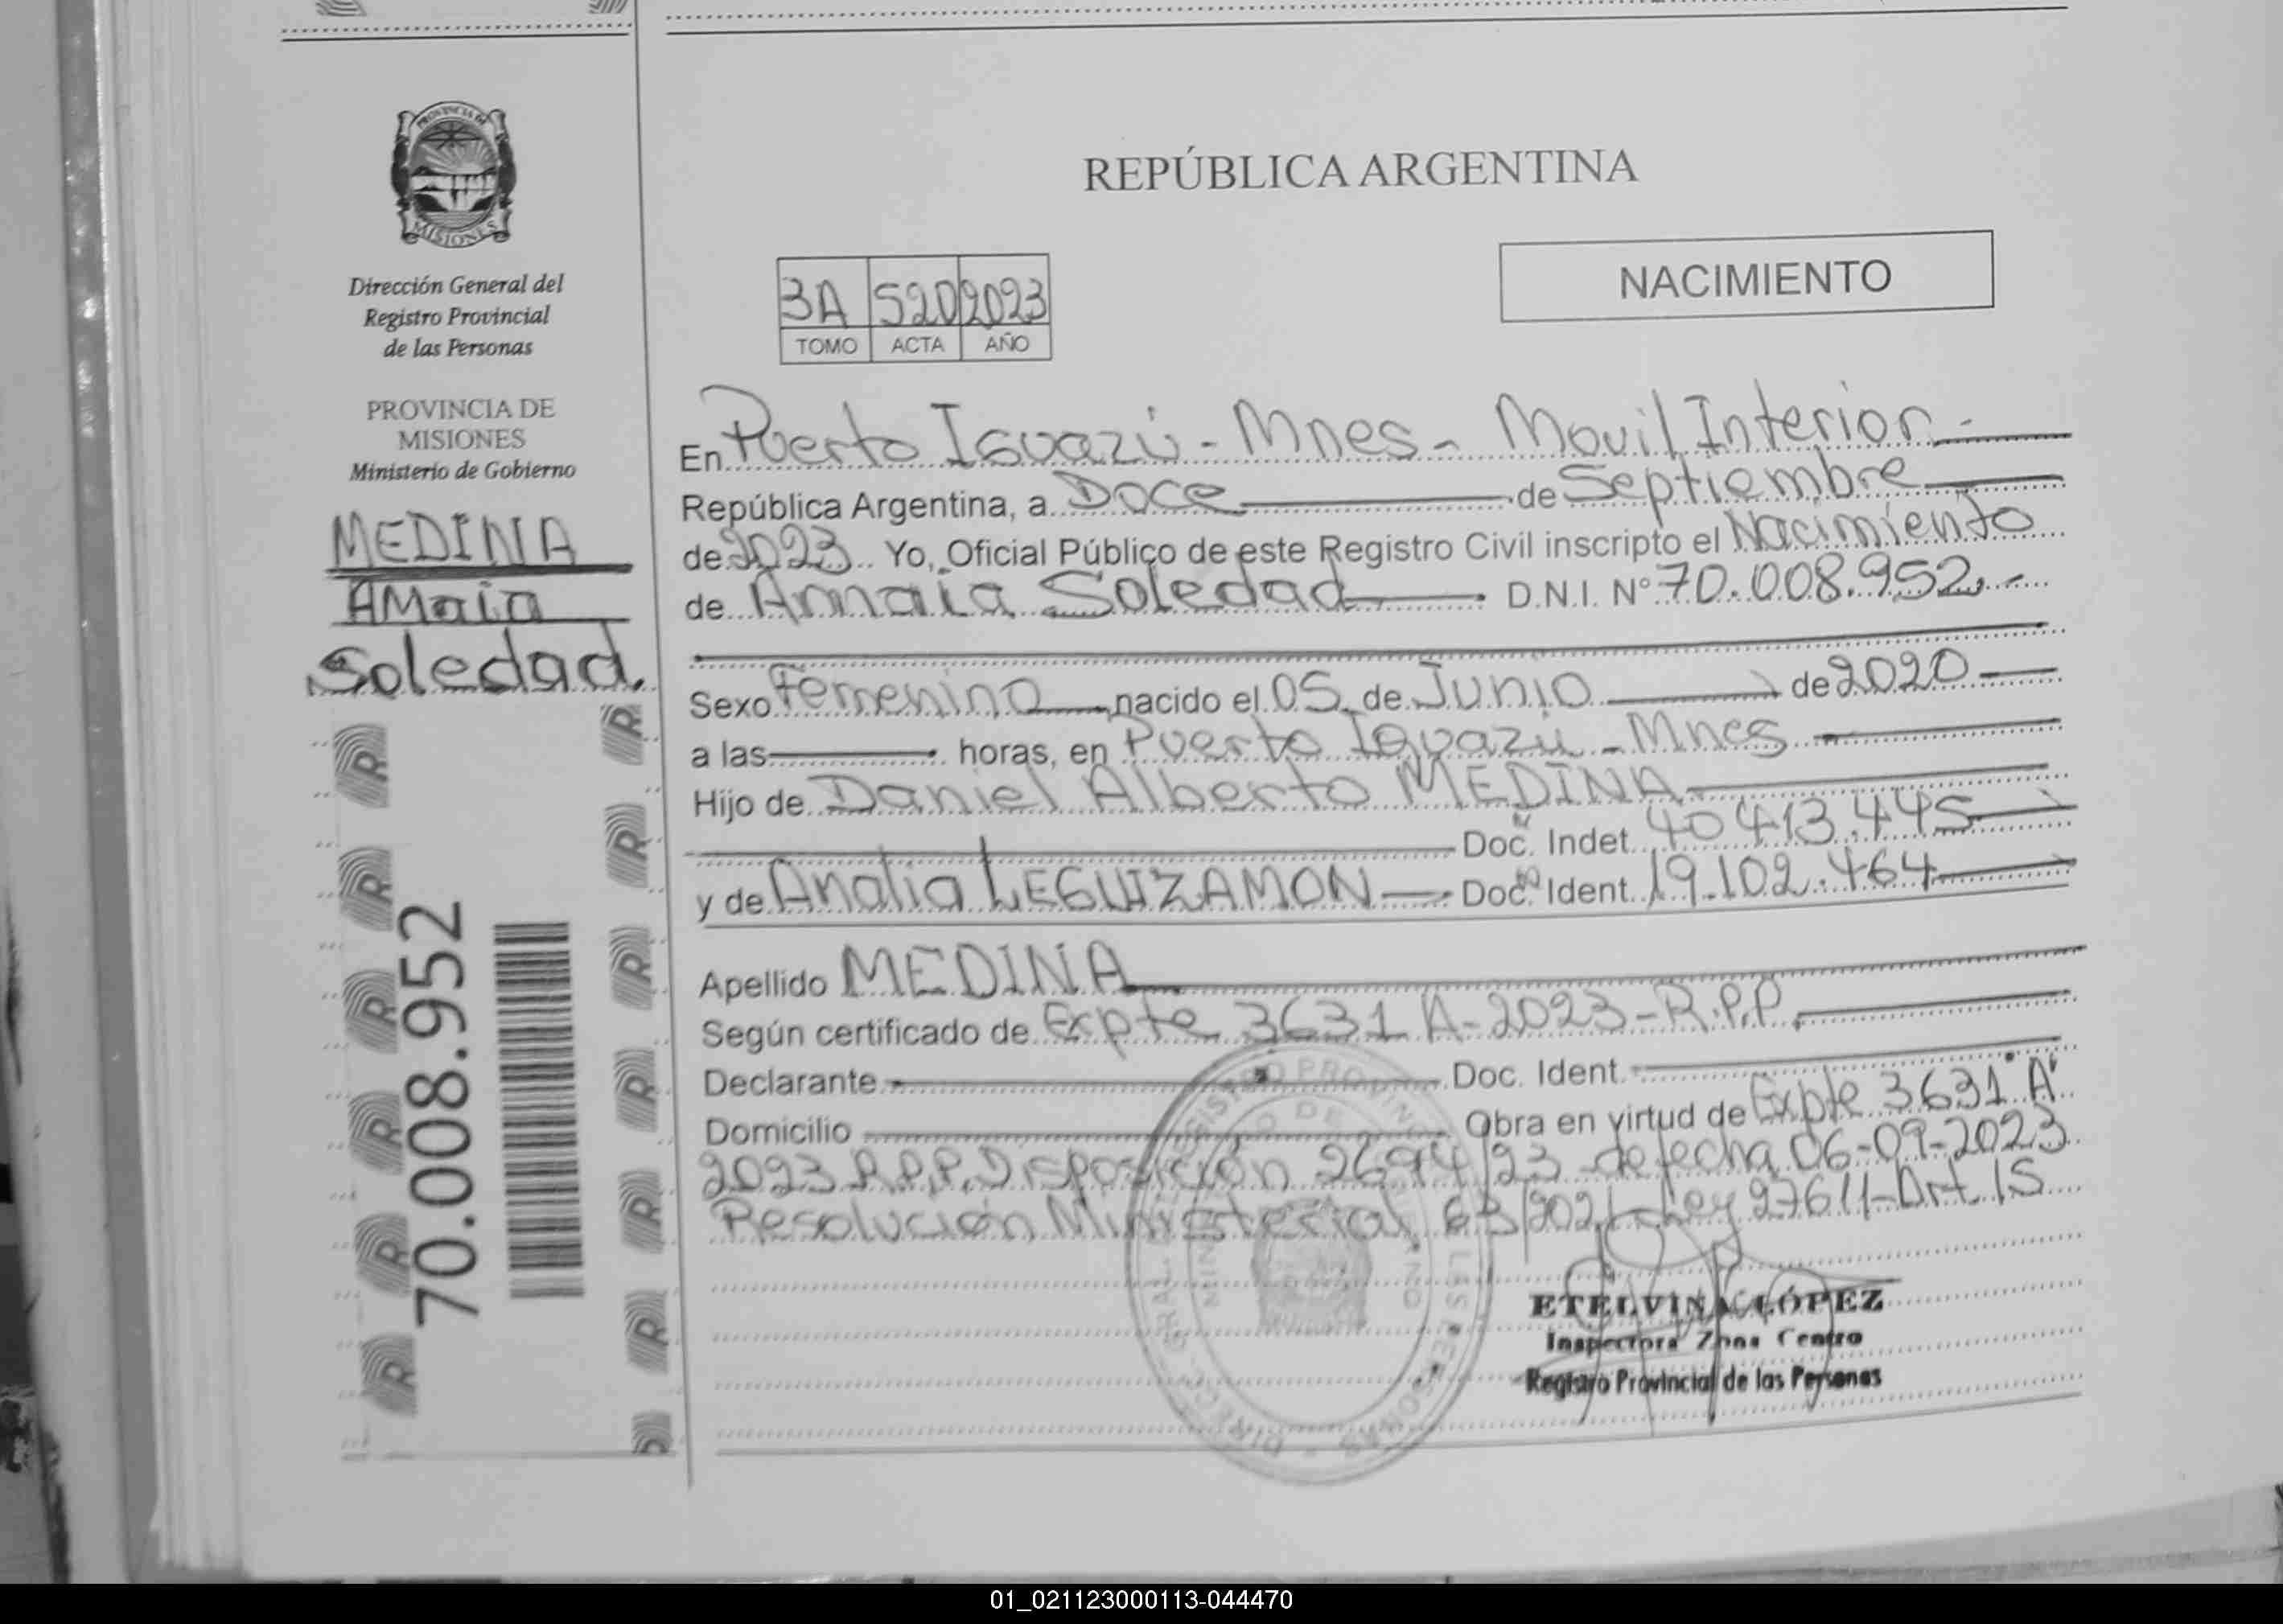 PROVINCIA DE
MISIONES
Dirección General del
Registro Provincial
de las Personas
PROVINCIA DE
MISIONES
Ministerio de Gobierno
MEDINA
AMaia
Soledad.
70.008.952
REPÚBLICA ARGENTINA
NACIMIENTO
3A 520 2023
TOMO ACTA AÑO
En Puerto Iguazú - Mnes - Movil Interior -
República Argentina, a Doce de Septiembre
de 2023 Yo, Oficial Público de este Registro Civil inscripto el Nacimiento
de Amaia Soledad D.N.I. Nº 70.008.952.-
Sexo Femenino nacido el 05 de Junio de 2020
a las horas, en Puerto Iguazú - Mnes
Hijo de Daniel Alberto MEDINA
Doc. Indet. 40 413.445
y de Analia LEGUIZAMON Doc. Ident. 19.102.464
Apellido MEDINA
Según certificado de Expte 3631 A-2023-R.P.P.
Declarante Doc. Ident.
Domicilio Obra en virtud de Expte 3631 "A"
2023 R.P.P. Disposición 2694/23 de fecha 06-09-2023
Resolución Ministerial 63/2021-Ley 27611-Art. 15
ETELVINA LÓPEZ
Inspectora Zona Centro
Registro Provincial de las Personas
01_021123000113-044470